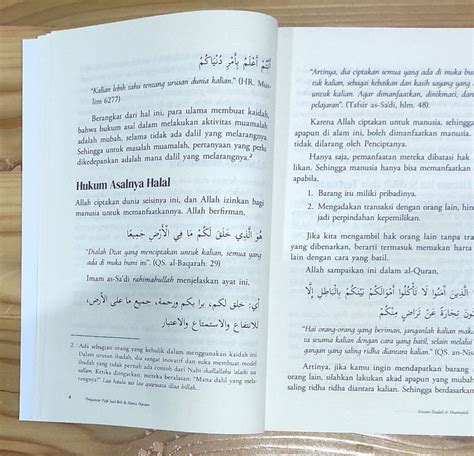 أَنْتُمْ أَعْلَمُ بِأَمْرِ دُنْيَاكُمْ
"Kalian lebih tahu tentang urusan dunia kalian." (HR. Mus-
lim 6277)
Berangkat dari hal ini, para ulama membuat kaidah,
bahwa hukum asal dalam melakukan aktivitas muamalah
adalah mubah, selama tidak ada dalil yang melarangnya.
Sehingga untuk masalah muamalah, pertanyaan yang perlu
dikedepankan adalah mana dalil yang melarangnya.²
Hukum Asalnya Halal
Allah ciptakan dunia seisinya ini, dan Allah izinkan bagi
manusia untuk memanfaatkannya. Allah berfirman,
هُوَ الَّذِي خَلَقَ لَكُمْ مَا فِي الْأَرْضِ جَمِيعًا
"Dialah Dzat yang menciptakan untuk kalian, semua yang
ada di muka bumi ini". (QS. al-Baqarah: 29)
Imam as-Sa'di rahimahullah menjelaskan ayat ini,
أي: خلق لكم، برا بكم ورحمة، جميع ما على الأرض،
للانتفاع والاستمتاع والاعتبار
2. Ada sebagian orang yang kebalik dalam menggunakan kaidah ini
Dalam urusan ibadah, dia sangat inovatif dan suka membuat model
ibadah yang tidak pernah ada contoh dari Nabi shallallahu 'alaihi
Ketika diingatkan, mereka beralasan: "Mana dalil yang
rangnya?" Laa haula wa laa quwwata illaa billah.
4 Pengantar Fiqh Jual Beli & Harta Haram
"Artinya, dia ciptakan semua yang ada di muka
tuk kalian, sebagai kebaikan dan kasih
untuk kalian. Agar dimanfaatkan, dinikmati, dan
pelajaran". (Tafsir as-Sa'di, hlm. 48).
Karena Allah ciptakan untuk manusia, sehingga
apapun di alam ini, boleh dimanfaatkan manusia.
tidak dilarang oleh Penciptanya.
Hanya saja, pemanfaatan mereka dibatasi hak
likan. Sehingga manusia hanya bisa memanfaatkan
apabila,
1. Barang itu miliki pribadinya.
2. Mengadakan transaksi dengan orang lain,
jadi perpindahan kepemilikan.
Jika kita mengambil hak orang lain tanpa
yang dibenarkan, berarti termasuk memakan harta
lain dengan cara yang batil.
Allah sampaikan ini dalam al-Quran,
الَّذِينَ آمَنُوا لَا تَأْكُلُوا أَمْوَالَكُمْ بَيْنَكُمْ بِالْبَاطِلِ إِلَّا
تِجَارَةً عَنْ تَرَاضٍ مِنْكُمْ
"Hai orang-orang yang beriman, janganlah kalian
sesama kalian dengan cara yang batil, selain melalui
gangan yang saling ridha diantara kalian." (QS. an-Nisa
Artinya, jika kamu ingin mendapatkan barang
orang lain, silahkan lakukan akad apapun yang mubah
saling ridha diantara kalian. Sehingga berdasarkan
Antara Ibadah & Muamalah